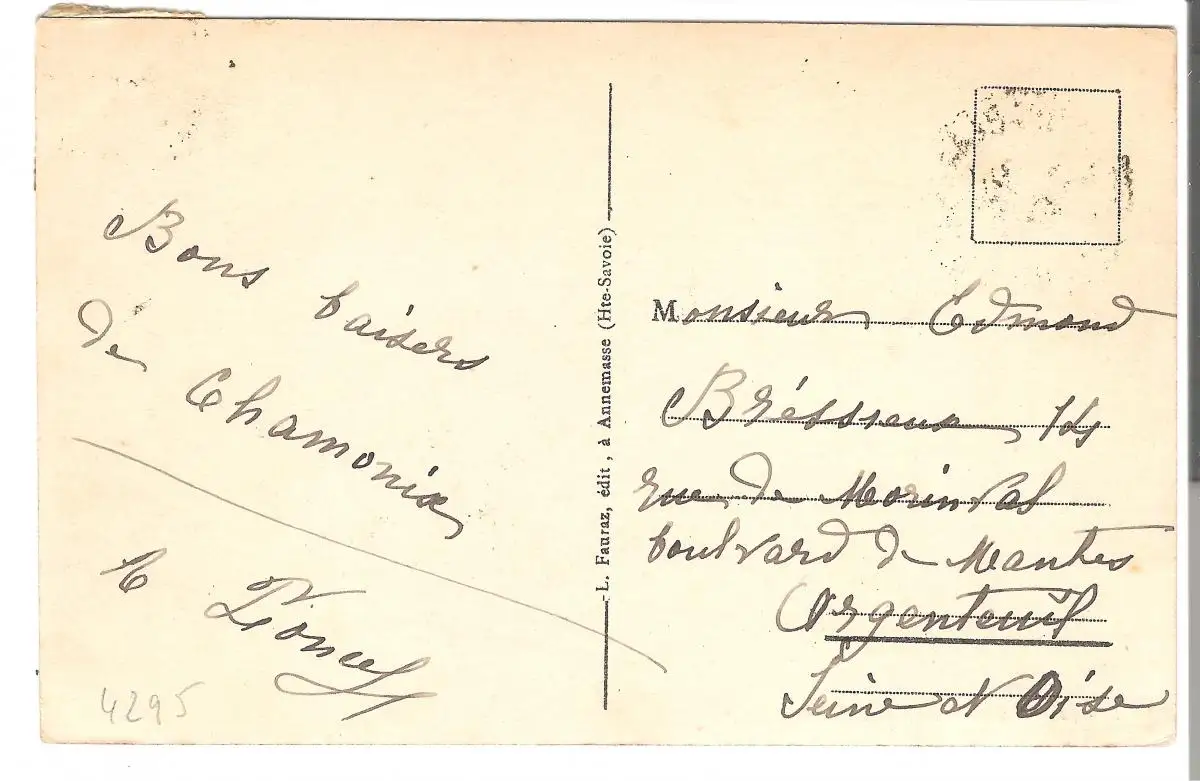 Bons baisers
de Chamonix
L. Fauraz, édit, à Annemasse (Hte-Savoie)
Monsieur Edmond
14
rue de Morinval
boulvard de Mantes
Argenteuil
Seine et Oise
4295